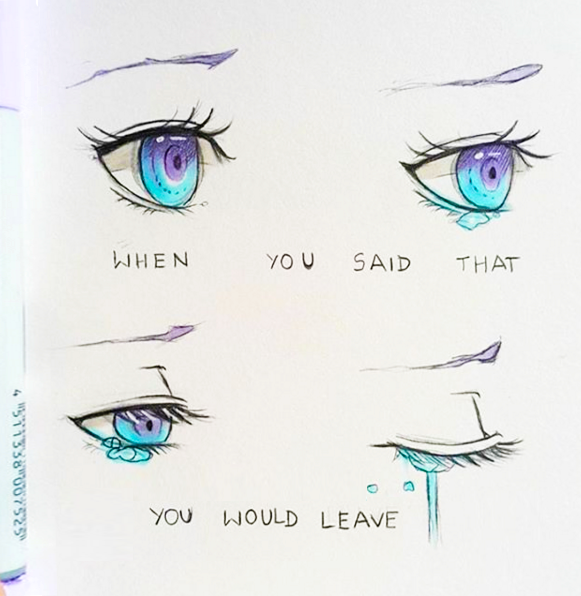 WHEN YOU SAID THAT
YOU WOULD LEAVE
4511338007525